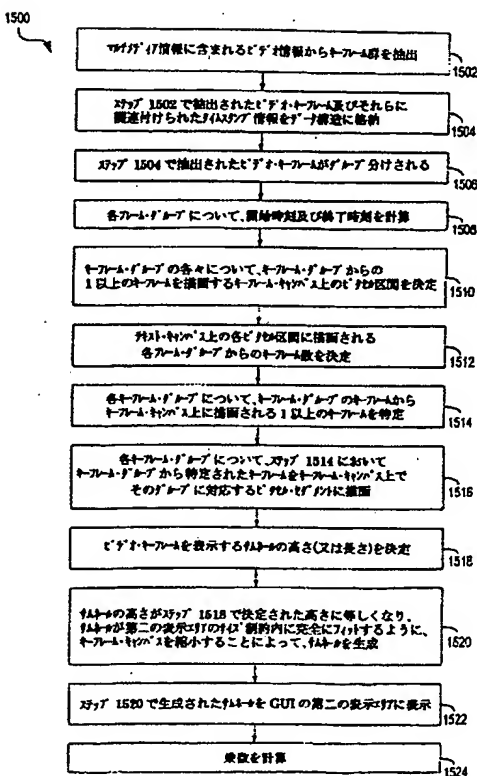 1500
マルチメディア情報に含まれるビデオ情報からキーフレーム群を抽出
1502
ステップ 1502 で抽出されたビデオ・キーフレーム及びそれらに
関連付けられたタイムスタンプ情報をデータ構造に格納
1504
ステップ 1504 で抽出されたビデオ・キーフレームがグループ分けされる
1506
各フレーム・グループについて、開始時刻及び終了時刻を計算
1508
キーフレーム・グループの各々について、キーフレーム・グループからの
1 以上のキーフレームを描画するキーフレーム・キャンバス上のピクセル区間を決定
1510
テキスト・キャンバス上の各ピクセル区間に描画される
各フレーム・グループからのキーフレーム数を決定
1512
各キーフレーム・グループについて、キーフレーム・グループのキーフレームから
キーフレーム・キャンバス上に描画される 1 以上のキーフレームを特定
1514
各キーフレーム・グループについて、ステップ 1514 において
キーフレーム・グループから特定されたキーフレームをキーフレーム・キャンバス上で
そのグループに対応するピクセル・セグメントに描画
1516
ビデオ・キーフレームを表示するサムネールの高さ(又は長さ)を決定
1518
サムネールの高さがステップ 1518 で決定された高さに等しくなり、
サムネールが第二の表示エリアのサイズ制約内に完全にフィットするように、
キーフレーム・キャンバスを縮小することによって、サムネールを生成
1520
ステップ 1520 で生成されたサムネールを GUI の第二の表示エリアに表示
1522
乗数を計算
1524